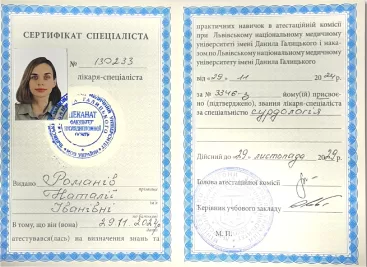 СЕРТИФІКАТ СПЕЦІАЛІСТА
№ 130233
лікаря-спеціаліста
ДЕКАНАТ
Видано Романів
Наталії
Іванівні
В тому, що він(вона) 29.11.2024р.
атестувався(лась) на визначення знань та
практичних навичок в атестаційній комісії
при Львівському національному медичному
університеті імені Данила Галицького і на-
казом по Львівському національному медичному
університеті імені Данила Галицького
від «29» 11 2024р.
за № 3346-з йому(їй) присвоє-
но (підтверджено), звання лікаря-спеціаліста
за спеціальністю сурдологія
Дійсний до «29» листопада 2029р.
Голова атестаційної комісії
Керівник учбового закладу
М. П.